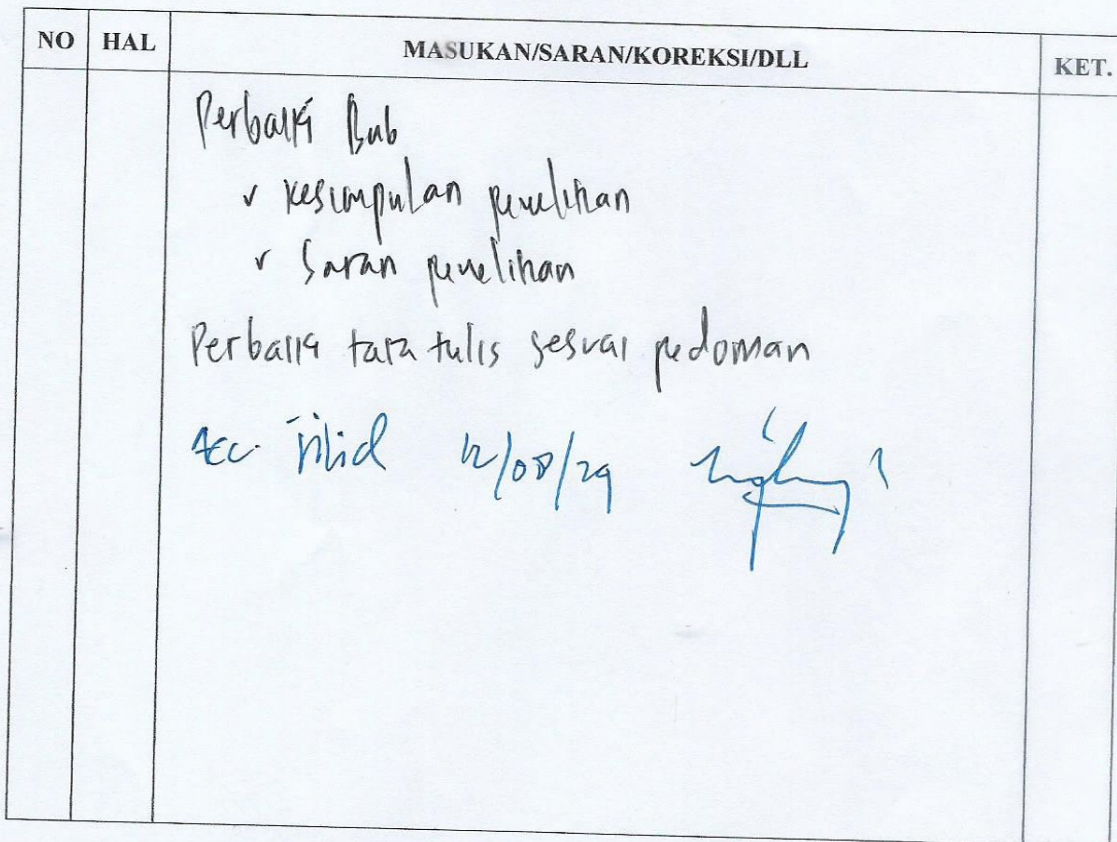 NO HAL MASUKAN/SARAN/KOREKSI/DLL KET.
Perbaiki Bab
v kesimpulan penelitian
v Saran penelitian
Perbaiki tata tulis sesuai pedoman
Acc Jilid